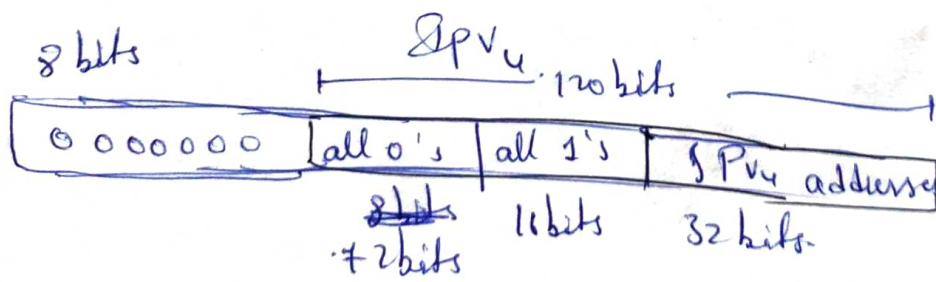 8 bits
IPv4
120 bits
0 0 0 0 0 0 0 all 0's all 1's IPv4 addresse
72 bits 16 bits 32 bits.